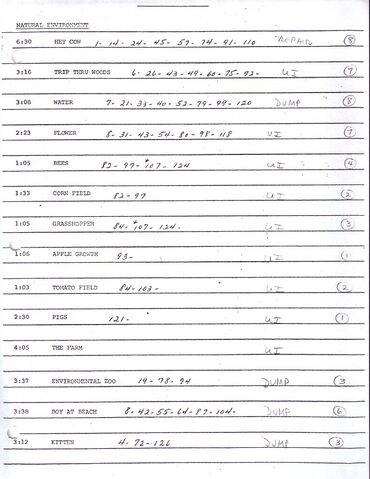 NATURAL ENVIRONMENT
6:30 HEY COW 1- 14- 24- 45- 57- 74- 91- 110 REPAIR 8
3:16 TRIP THRU WOODS 6- 26-43-49-60-75-92- UI 7
3:08 WATER 7-21-33-40-52-79-99-120 DUMP 8
2:23 FLOWER 8-31-43-54-80-98-118 UI 7
1:05 BEES 82-97-*107-124 UI 4
1:33 CORN FIELD 82-97 UI 2
1:05 GRASSHOPPER 84-*107-124- UI 3
1:06 APPLE GROWTH 93- UI 1
1:03 TOMATO FIELD 84-103- UI 2
2:30 PIGS 121- UI 1
4:05 THE FARM UI
3:37 ENVIRONMENTAL ZOO 19-78-94 DUMP 3
3:38 BOY AT BEACH 8-42-55-64-87-104- DUMP 6
3:12 KITTEN 4-72-126 DUMP 3